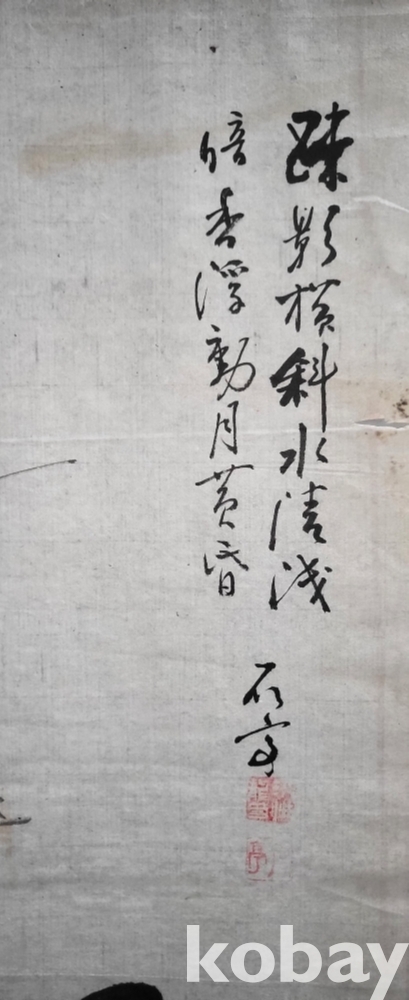 疎影橫斜水清浅
暗香浮動月黄昏
石亭
亭
kobay